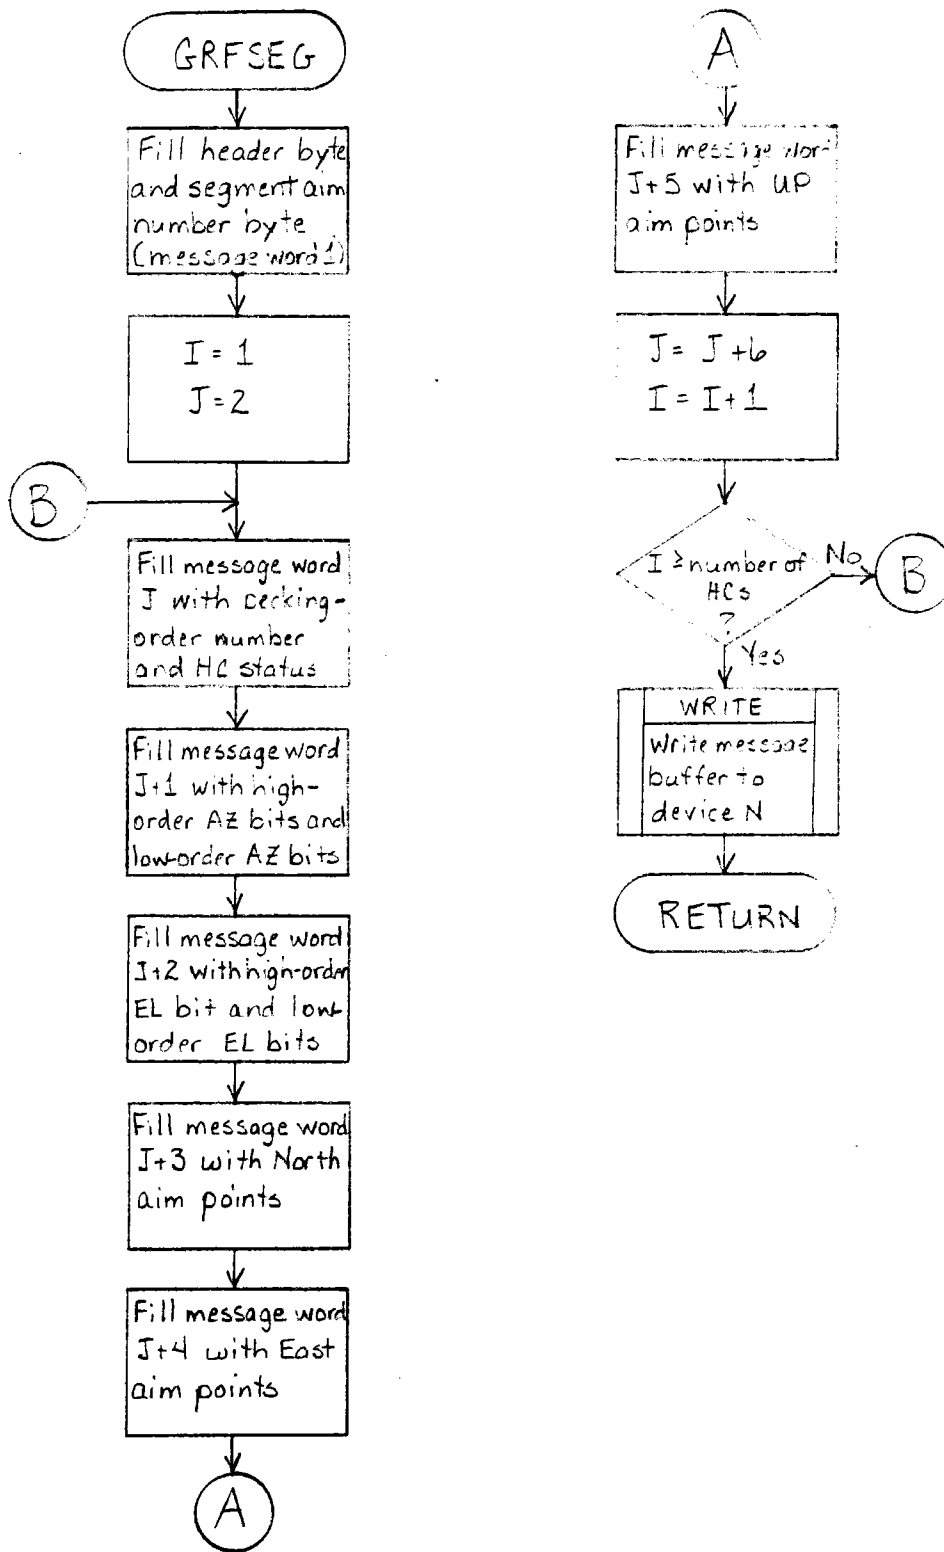 GRFSEG
Fill header byte
and segment aim
number byte
(message word 1)
I = 1
J = 2
B
Fill message word
J with cecking-
order number
and HC status
Fill message word
J+1 with high-
order AZ bits and
low-order AZ bits
Fill message word
J+2 with high-order
EL bit and low-
order EL bits
Fill message word
J+3 with North
aim points
Fill message word
J+4 with East
aim points
A
A
Fill message wor
J+5 with UP
aim points
J = J+6
I = I+1
I ≥ number of
HCs
?
No
B
Yes
WRITE
Write message
buffer to
device N
RETURN